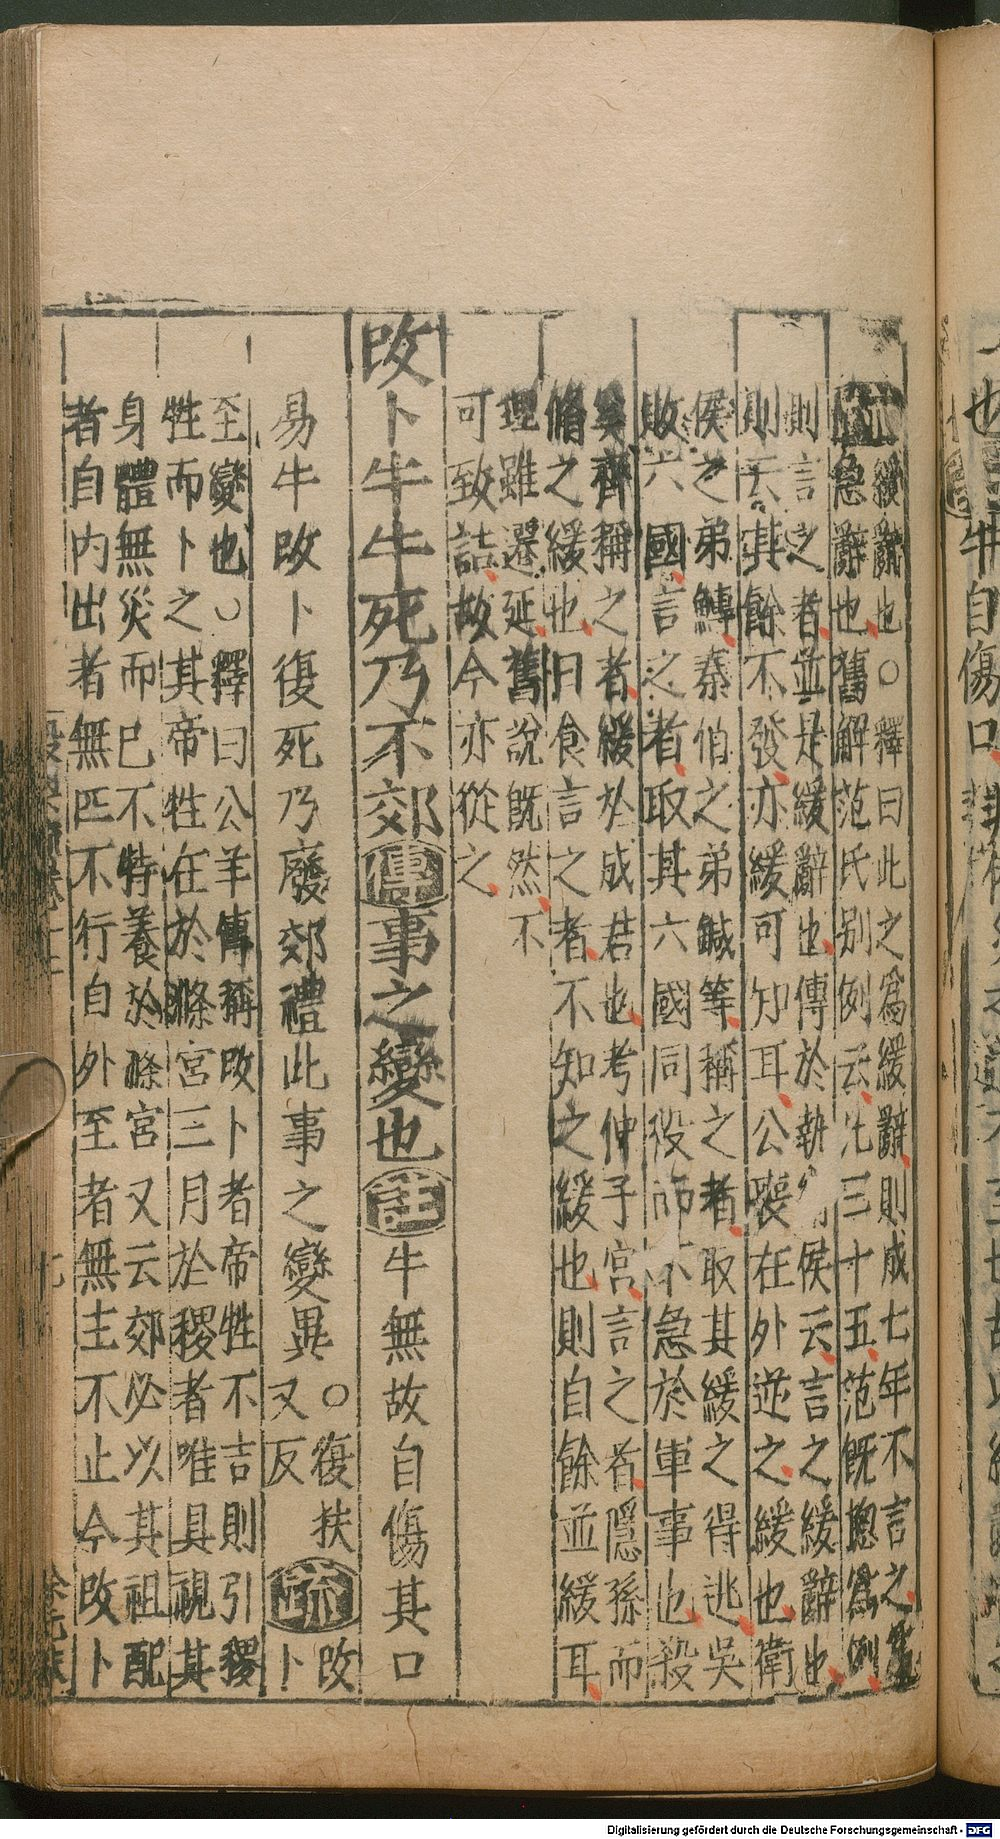 疏緩辭也○釋曰此之爲緩辭則成七年不言之爲
急辭也舊解范氏别例云凡三十五范既揔爲例
則言之者並是緩辭也傳於執侯云言之緩辭也
則云其餘不發亦緩可知耳公喪在外逆之緩也衛
侯之弟鱄秦伯之弟鍼等稱之者取其緩之得逃吳
敗六國言之者取其六國同役而不急於軍事也殺
奚齊稱之者緩於成君也考仲子宮言之者隱孫而
脩之緩也日食言之者不知之緩也則自餘並緩耳
理雖遷延舊說既然不
可致詰故今亦從之
改卜牛牛死乃不郊傳事之變也註牛無故自傷其口
易牛改卜復死乃廢郊禮此事之變異○復扶又反疏改卜
至變也○釋曰公羊傳稱改卜者帝牲不吉則引稷
牲而卜之其帝牲在於滌宮三月於稷者唯具視其
身體無災而已不特養於滌宮又云郊必以其祖配
者自内出者無匹不行自外至者無主不止今改卜
七
也牛自傷口
Digitalisierung gefördert durch die Deutsche Forschungsgemeinschaft - DFG